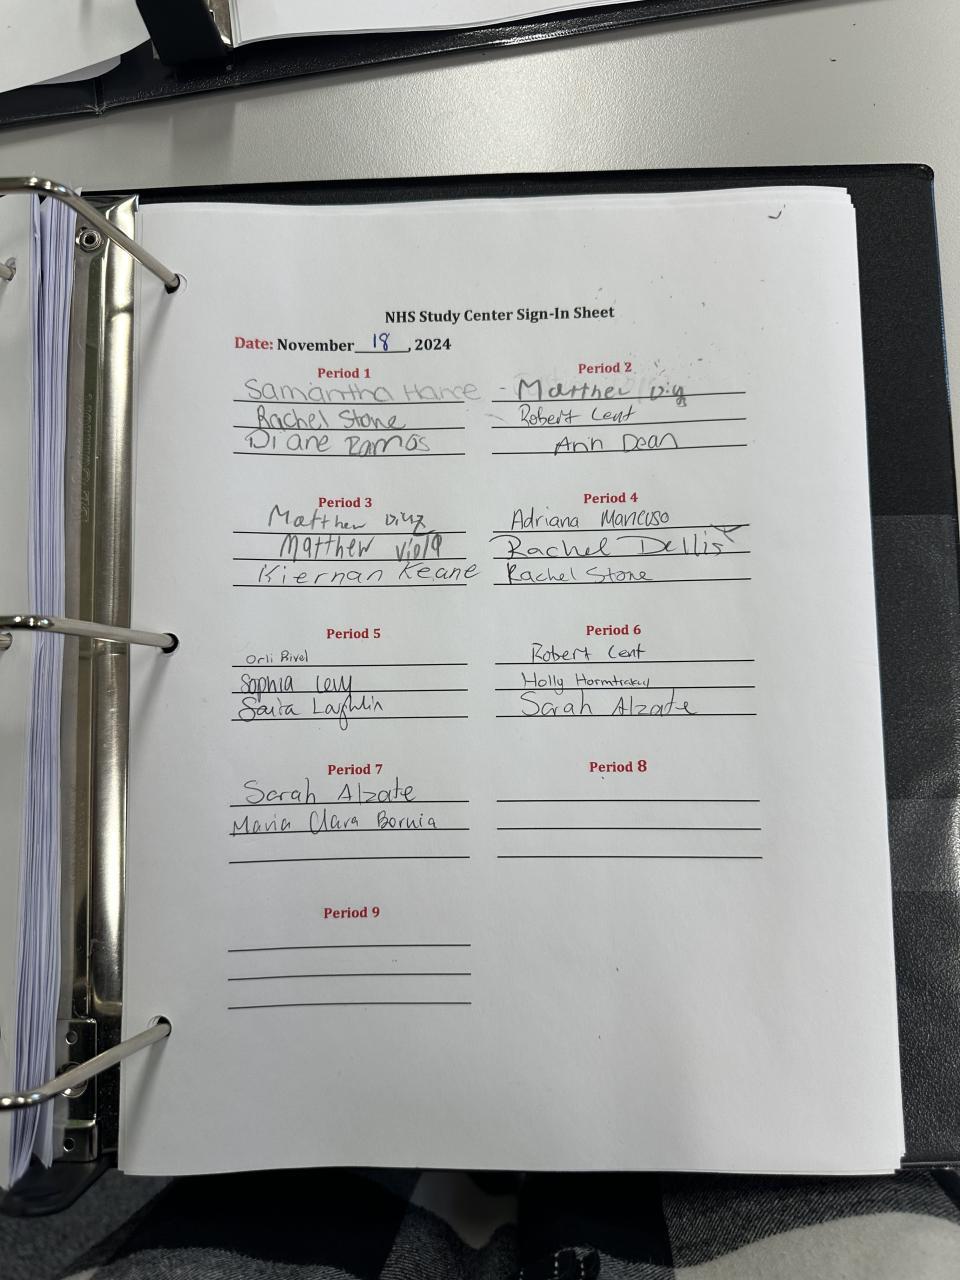 NHS Study Center Sign-In Sheet
Date: November 18, 2024
Period 1
Samantha Hance
Rachel Stone
Diane Ramos
Period 2
Matthew
Robert Lent
Ann Dean
Period 3
Matthew
Matthew Viola
Kiernan Keane
Period 4
Adriana Mancuso
Rachel Dellis
Rachel Stone
Period 5
Orli
Sophia Levy
Laghlin
Period 6
Robert Lent
Holly
Sarah Alzate
Period 7
Sarah Alzate
Maria Clara Bornia
Period 8
Period 9